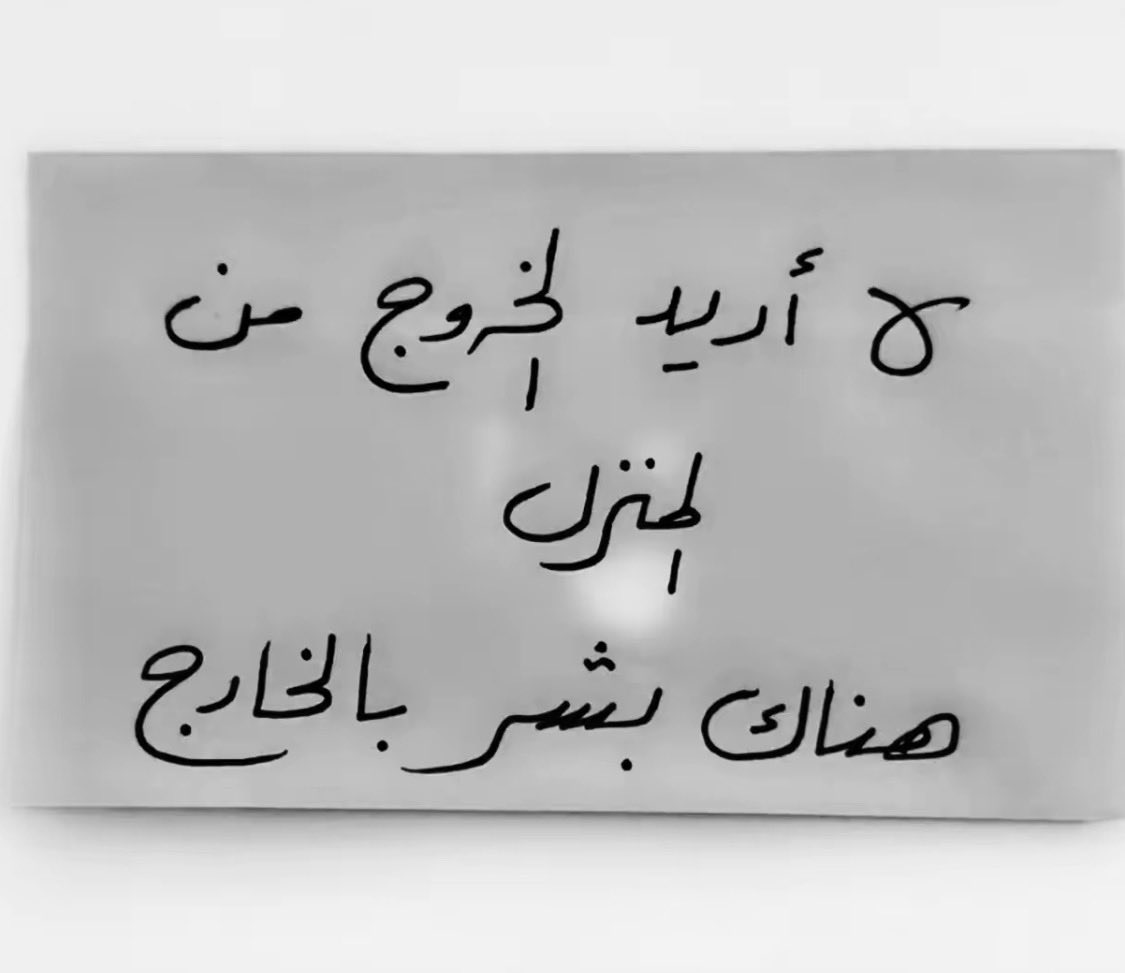 لا أريد الخروج من
المنزل
هناك بشر بالخارج